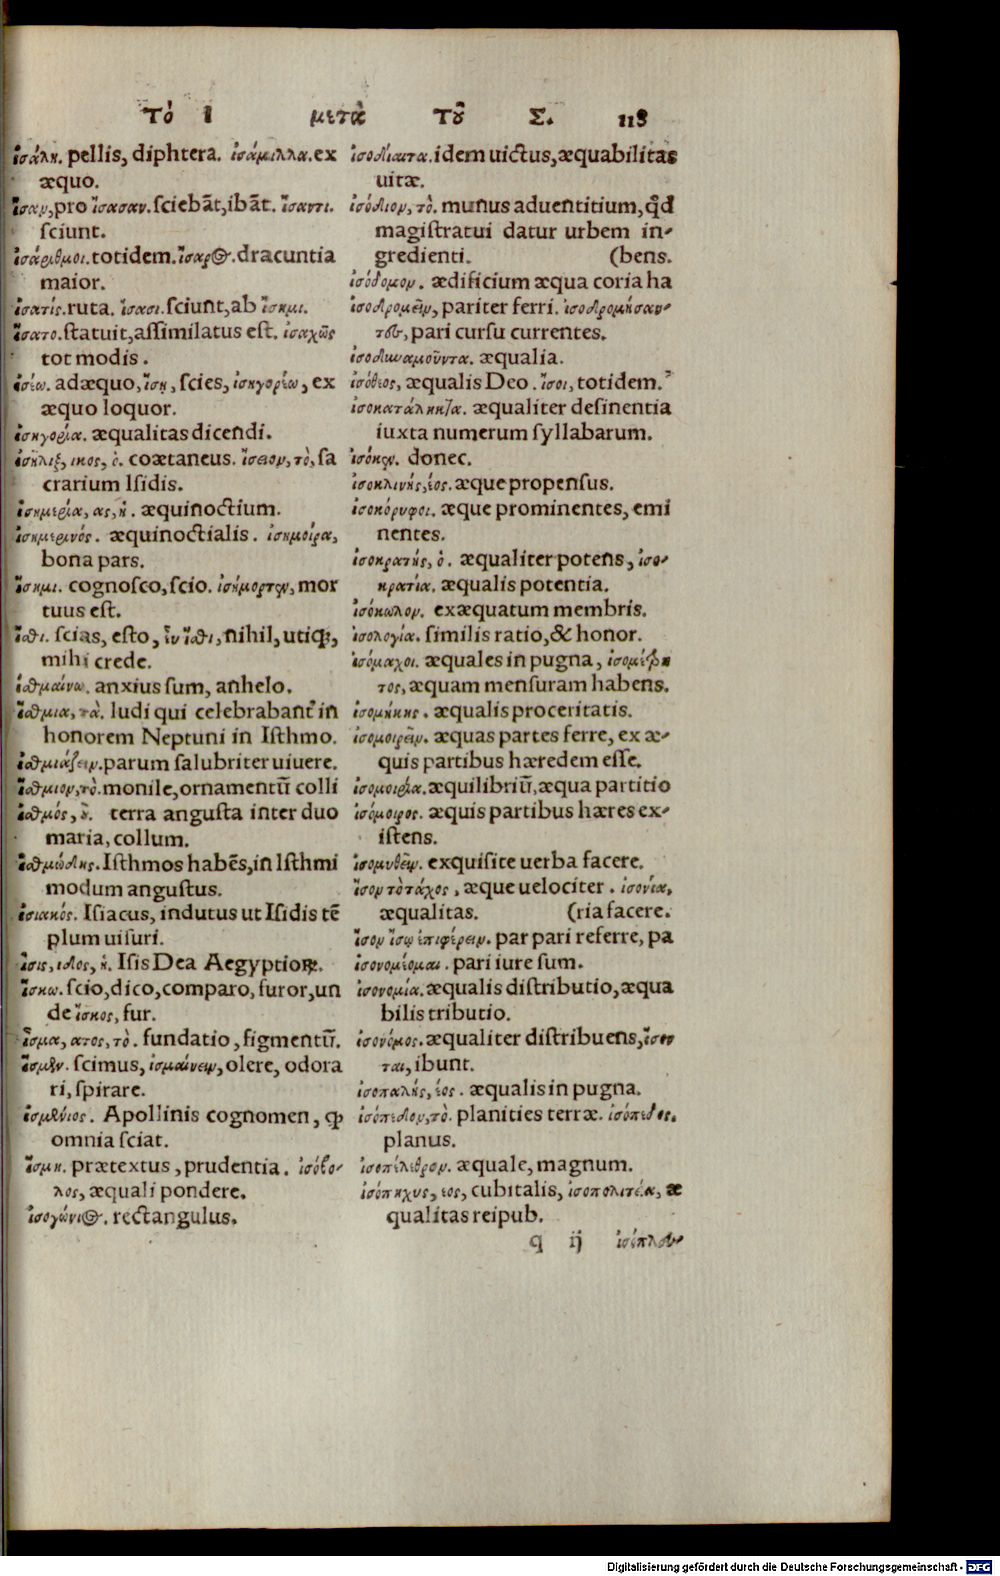 Τὸ Ι μετὰ τοῦ Σ. 118
ἰσάλη. pellis, diphtera. ἰσάμιλλα. ex
æquo.
ἴσαν, pro ἴσασαν. ſciebāt, ibāt. ἴσαντι.
ſciunt.
ἰσάριθμοι. totidem. ἴσαρος. dracuntia
maior.
ἰσατίς. ruta. ἴσασι. ſciunt, ab ἴσημι.
ἴσατο. ſtatuit, aſſimilatus eſt. ἰσαχῶς
tot modis.
ἰσέω. adæquo, ἴσῃ, ſcies, ἰσηγορέω, ex
æquo loquor.
ἰσηγορία. æqualitas dicendi.
ἰσῆλιξ, ικος, ὁ. coætaneus. ἴσειον, τὸ, ſa
crarium Iſidis.
ἰσημερία, ας, ἡ. æquinoctium.
ἰσημερινός. æquinoctialis. ἰσημοίρα,
bona pars.
ἴσημι. cognoſco, ſcio. ἰσήμορτεν, mor
tuus eſt.
ἴσθι. ſcias, eſto, ἓν ἴσθι, nihil, utiq;,
mihi crede.
ἰσθμαίνω. anxius ſum, anhelo.
ἴσθμια, τὰ. ludi qui celebrabant᷑ in
honorem Neptuni in Iſthmo.
ἰσθμιάζειν. parum ſalubriter uiuere.
ἴσθμιον, τὸ. monile, ornamentū colli
ἰσθμός, ὁ. terra anguſta inter duo
maria, collum.
ἰσθμώδης. Iſthmos habēs, in Iſthmi
modum anguſtus.
ἰσιακός. Iſiacus, indutus ut Iſidis tē
plum uiſuri.
ἶσις, ιδος, ἡ. Iſis Dea Aegyptioꝝ.
ἴσκω. ſcio, dico, comparo, furor, un
de ἴσκος, fur.
ἷσμα, ατος, τὸ. fundatio, figmentū.
ἴσμεν. ſcimus, ἰσμαίνειν, olere, odora
ri, ſpirare.
ἰσμένιος. Apollinis cognomen, ꝙ
omnia ſciat.
ἴσμη. prætextus, prudentia. ἰσόβο-
λος, æquali pondere.
ἰσογώνιος. rectangulus.
ἰσοδίαιτα. idem uictus, æquabilitas
uitæ.
ἰσόδιον, τὸ. munus aduentitium, qd̄
magiſtratui datur urbem in-
gredienti. (bens.
ἰσόδομον. ædificium æqua coria ha
ἰσοδρομεῖν, pariter ferri. ἰσοδρομήσαν-
τες, pari curſu currentes.
ἰσοδυναμοῦντα. æqualia.
ἰσόθεος, æqualis Deo. ἴσοι, totidem.
ἰσοκατάληκτα. æqualiter deſinentia
iuxta numerum ſyllabarum.
ἰσόκεν. donec.
ἰσοκλινής, έος. æque propenſus.
ἰσοκόρυφοι. æque prominentes, emi
nentes.
ἰσοκρατής, ὁ. æqualiter potens, ἰσο-
κρατία. æqualis potentia.
ἰσόκωλον. exæquatum membris.
ἰσολογία. ſimilis ratio, & honor.
ἰσόμαχοι. æquales in pugna, ἰσομέτρη
τος, æquam menſuram habens.
ἰσομήκης. æqualis proceritatis.
ἰσομοιρεῖν. æquas partes ferre, ex æ-
quis partibus hæredem eſſe.
ἰσομοιρία. æquilibriū, æqua partitio
ἰσόμοιρος. æquis partibus hæres ex-
iſtens.
ἰσομυθεῖν. exquiſite uerba facere.
ἴσον τὸ τάχος, æque uelociter. ἰσονία,
æqualitas. (ria facere.
ἴσον ἴσῳ ἐπιφέρειν. par pari referre, pa
ἰσονομέομαι. pari iure ſum.
ἰσονομία. æqualis diſtributio, æqua
bilis tributio.
ἰσονόμος. æqualiter diſtribuens, ἴσον
ται, ibunt.
ἰσοπαλής, έος. æqualis in pugna.
ἰσόπεδον, τὸ. planities terræ. ἰσόπεδος.
planus.
ἰσοπέλεθρον. æquale, magnum.
ἰσόπηχυς, εος, cubitalis, ἰσοπολιτεία, æ
qualitas reipub.
q ij ἰσόπλου-
Digitalisierung gefördert durch die Deutsche Forschungsgemeinschaft - DFG